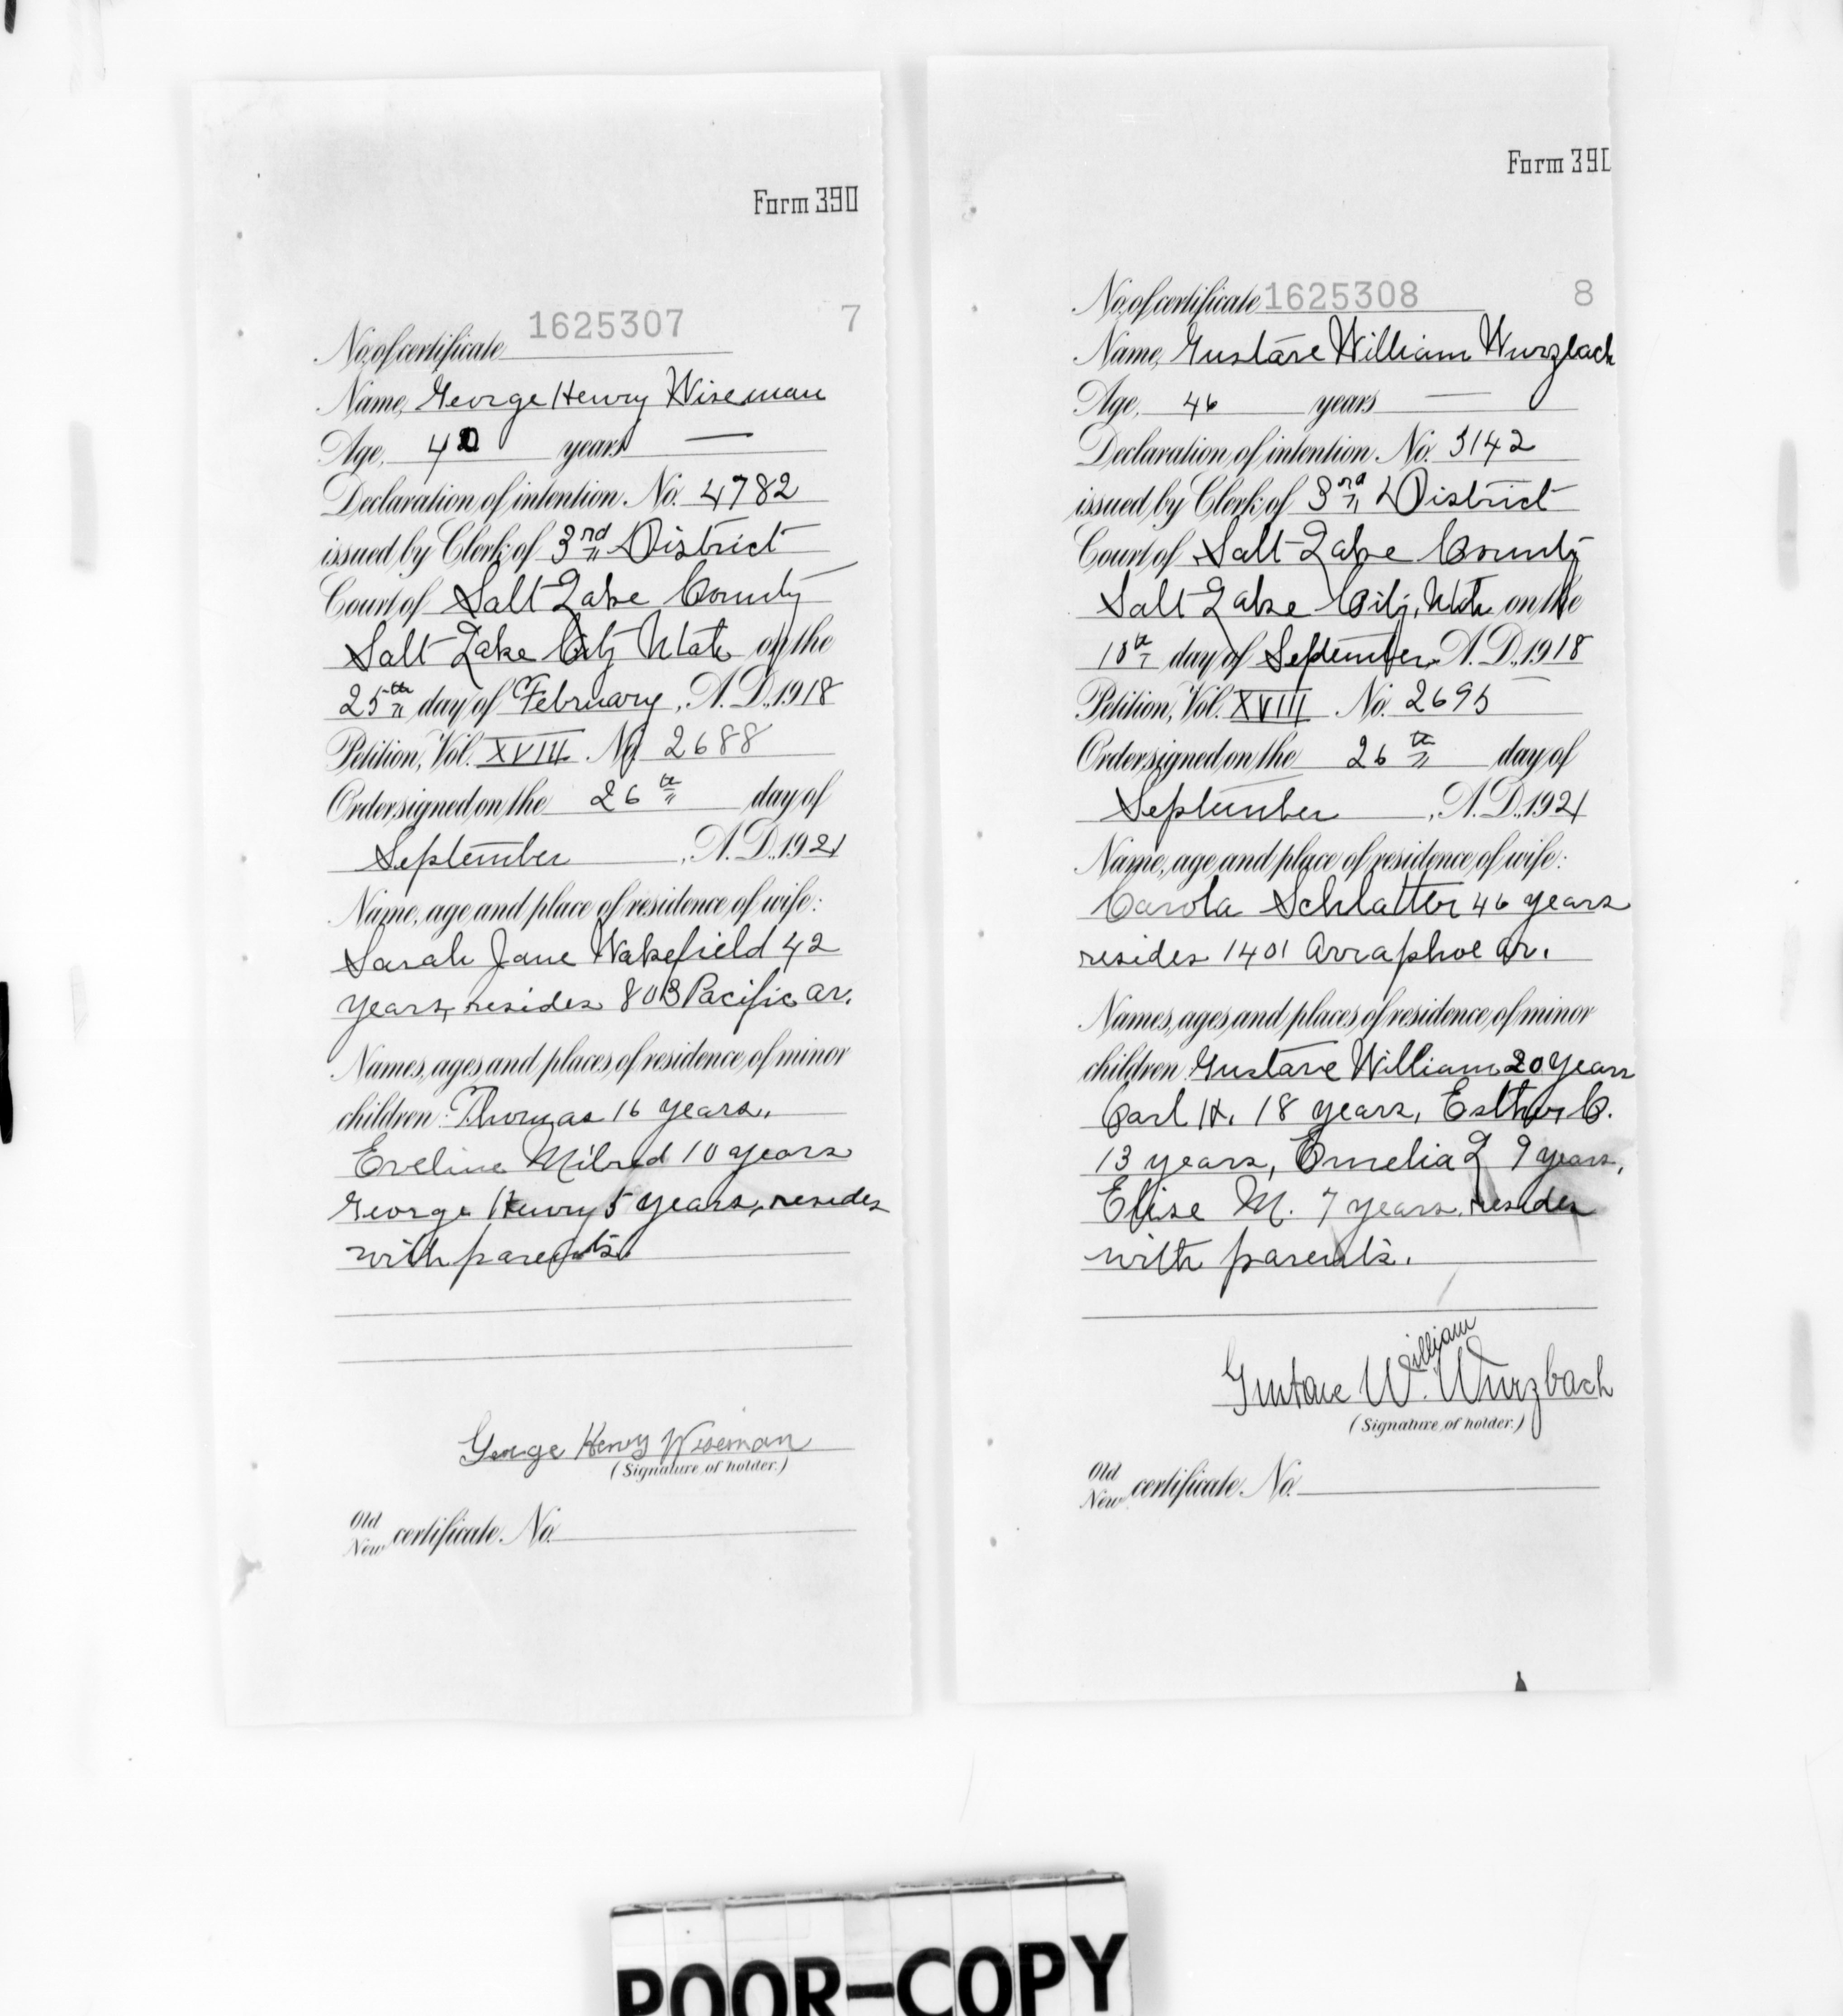 Form 390
No. of certificate 1625307 7
Name, George Henry Wiseman
Age, 42 years —
Declaration of intention No. 4782
issued by Clerk of 3rd District
Court of Salt Lake County
Salt Lake City Utah on the
25th day of February, A.D. 1918
Petition, Vol. XVIII No. 2688
Order signed on the 26th day of
September, A.D. 1921
Name, age and place of residence of wife:
Sarah Jane Wakefield 42
years, resides 803 Pacific av.
Names, ages and places of residence of minor
children: Thomas 16 years,
Eveline Milred 10 years
George Henry 5 years, resides
with parents.
George Henry Wiseman
(Signature of holder.)
Old
New certificate No.
Form 390
No. of certificate 1625308 8
Name, Gustave William Wurzbach
Age, 46 years —
Declaration of intention No. 5142
issued by Clerk of 3rd District
Court of Salt Lake County
Salt Lake City, Utah on the
10th day of September, A.D. 1918
Petition, Vol. XVIII No. 2695
Order signed on the 26th day of
September, A.D. 1921
Name, age and place of residence of wife:
Carola Schlatter 46 years
resides 1401 Arraphoe av.
Names, ages and places of residence of minor
children Gustave William 20 years
Carl H. 18 years, Esther C.
13 years, Omelia L 9 years,
Elise M. 7 years, resides
with parents.
Gustave William Wurzbach
(Signature of holder.)
Old
New certificate No.
POOR-COPY